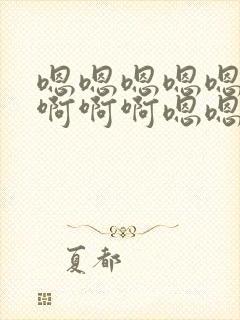 嗯嗯嗯嗯嗯
啊啊啊嗯嗯
夏都